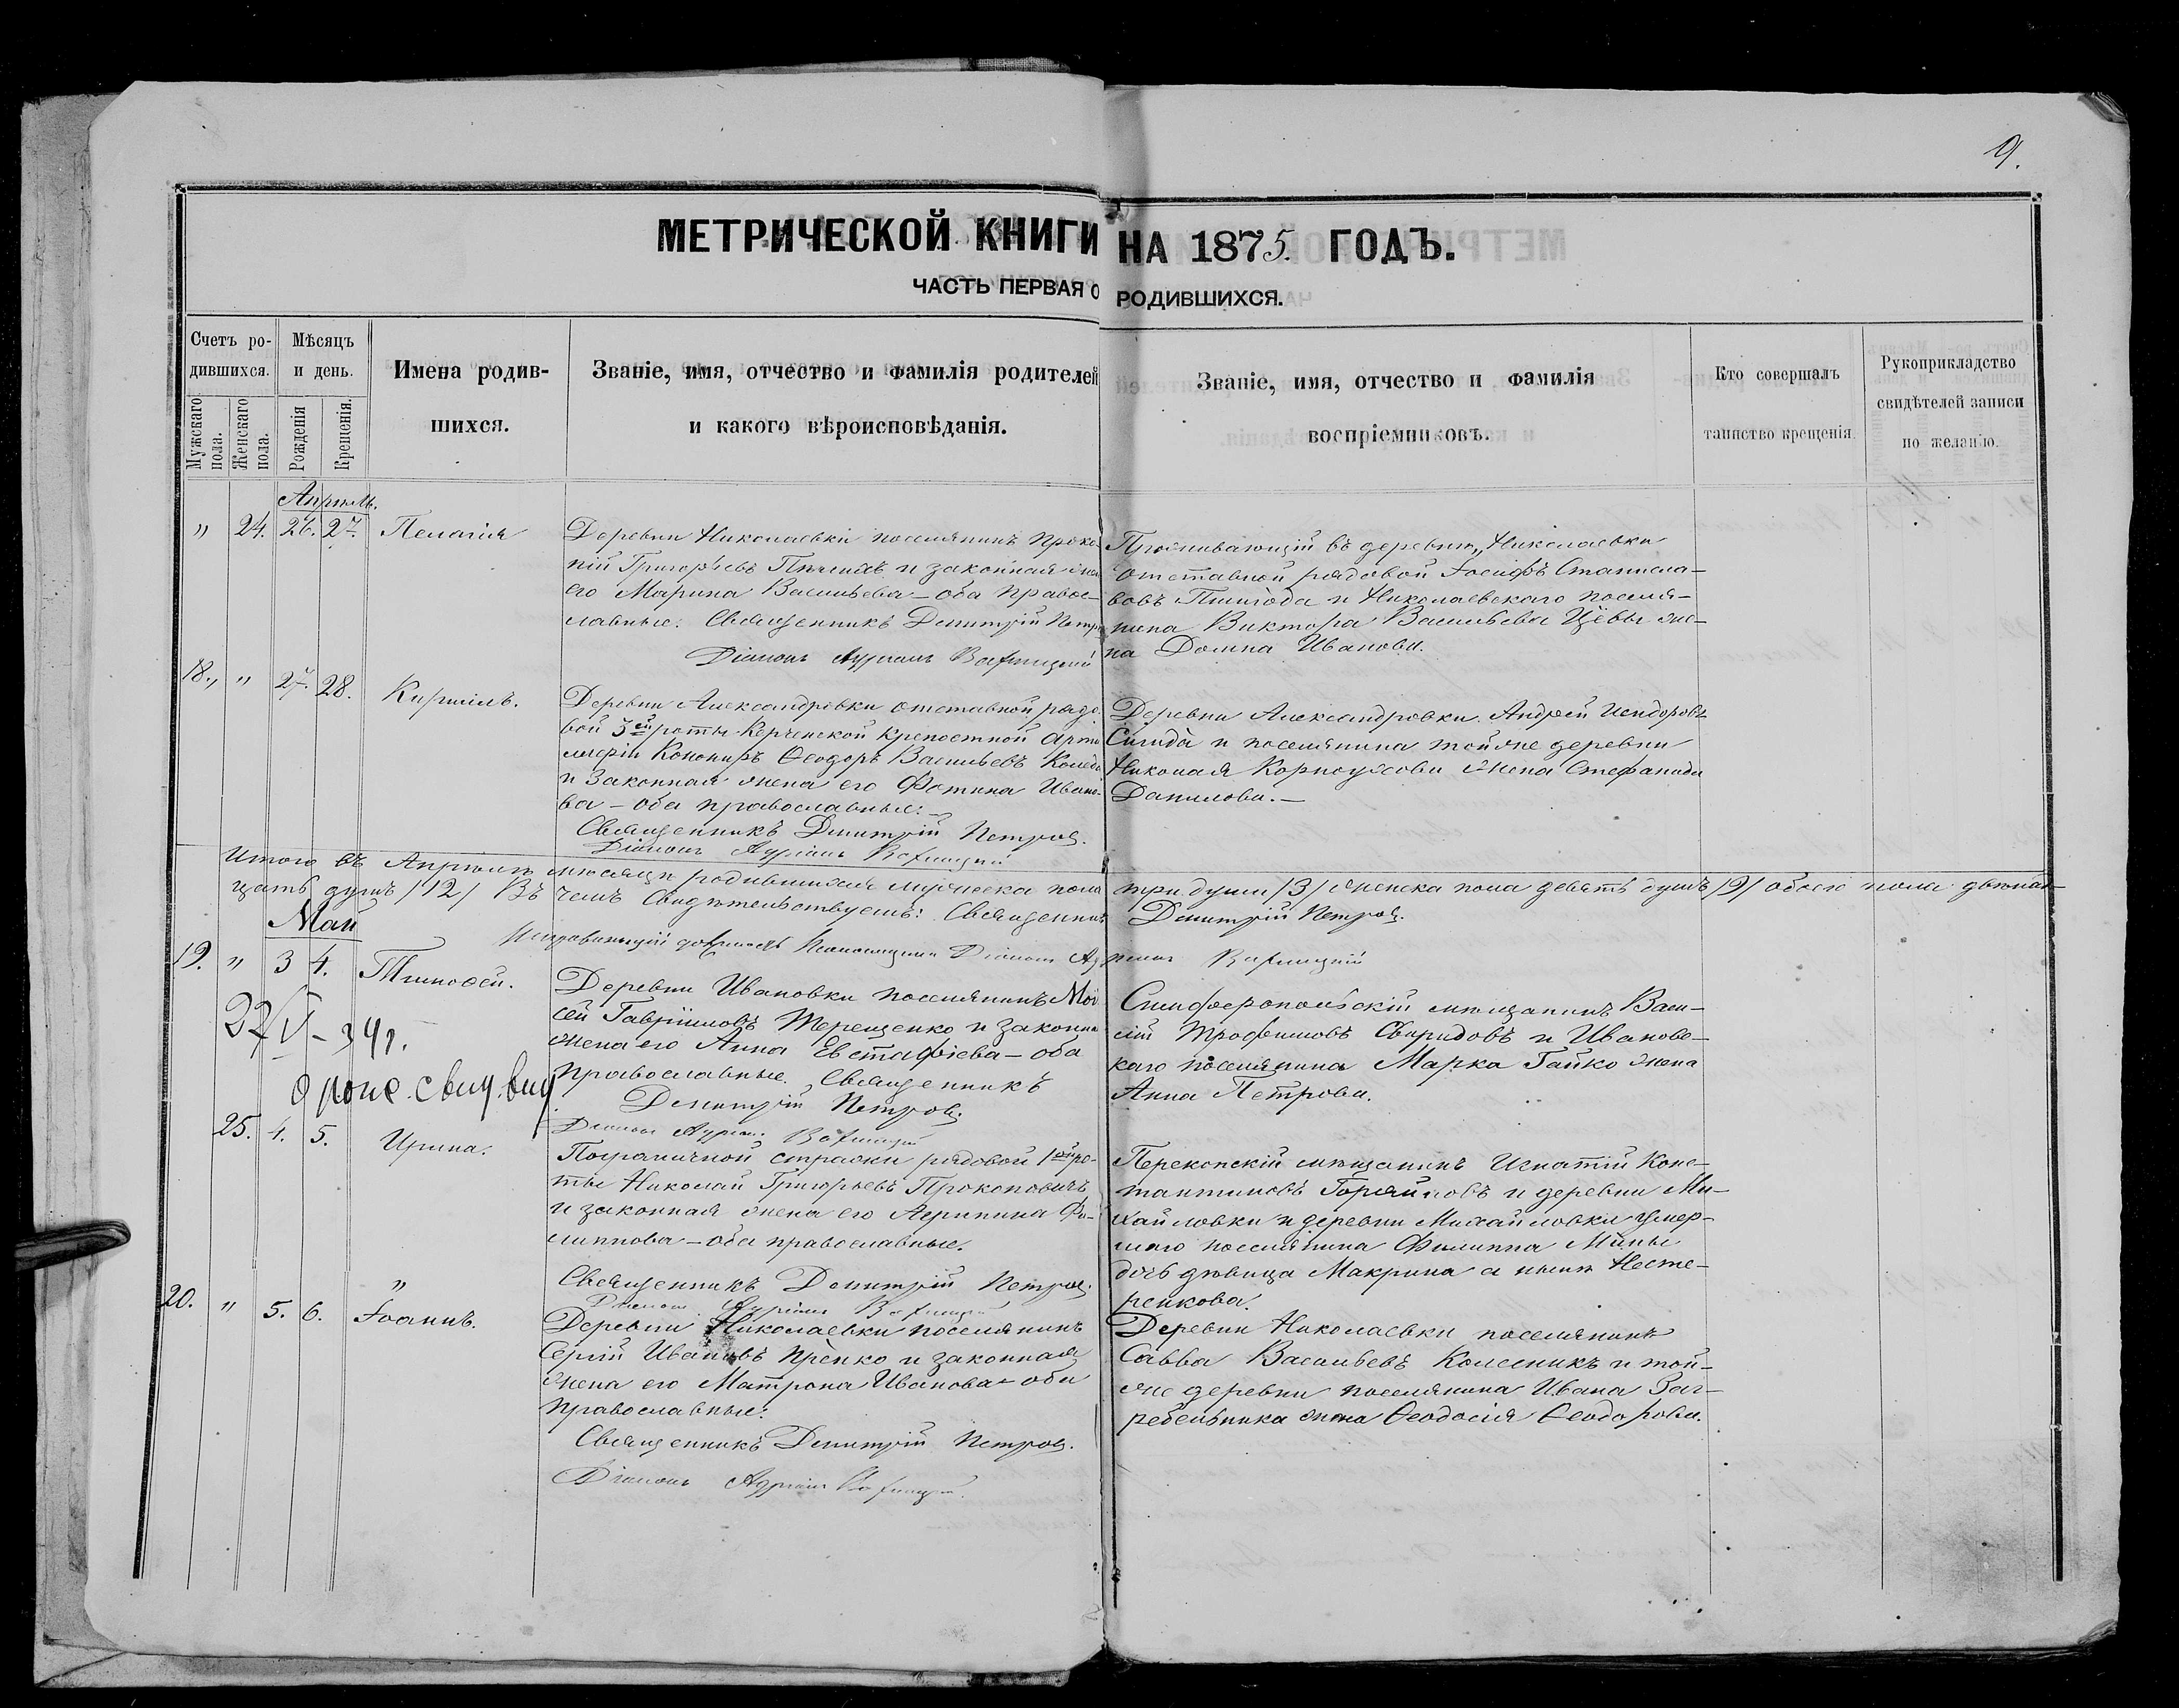 9.
МЕТРИЧЕСКОЙ КНИГИ НА 1875. ГОДЪ.
ЧАСТЬ ПЕРВАЯ О РОДИВШИХСЯ.
Счетъ ро-
дившихся.
Мужскаго пола.
Женскаго пола.
Мѣсяцъ
и день.
Рожденія
Крещенія.
Имена родив-
шихся.
Званіе, имя, отчество и фамилія родителей
и какого вѣроисповѣданія.
Званіе, имя, отчество и фамилія
воспріемниковъ.
Кто совершалъ
таинство крещенія.
Рукоприкладство
свидѣтелей записи
по желанію.
Апрѣль.
" 24. 26. 27. Пелагія
Деревни Николаевки поселянинъ Проко-
пій Григорьевъ и законная жена
его Марина Васильева – оба правос-
лавные. Священникъ Димитрій Петров
Діаконъ Адріанъ
Проживающій въ деревнѣ Николаевки
отставной рядовой Іосифъ Станисла-
вовъ и Николаевскаго поселя-
нина Виктора Васильева Цёвы же-
на Домна Иванова.
18. " 27. 28. Кириллъ.
Деревни Александровки отставной рядо-
вой 3ей роты Керченской крепостной арти
лерій Канониръ Ѳеодоръ Васильевъ
и законная жена его Фотина Ивано-
ва – оба православные.
Священникъ Димитрій Петров.
Діаконъ Адріанъ
Деревни Александровки Андрей Исидоровъ
Сигида и поселянина той же деревни
Николая жена Стефанида
Данилова. –
Итого въ Апрѣлѣ мѣсяцѣ родившихся мужеска пола три души /3/ женска пола девять душъ /9/ обоего пола двѣнад-
цать душъ /12/ Въ чемъ свидѣтельствуемъ: Священникъ Димитрій Петров.
Май
Исправляющій должность Псаломщика Діаконъ Адріанъ
19. " 3 4. Тимоѳей.
Деревни Ивановки поселянинъ Мои
сей Гавріиловъ Терещенко и законная
жена его Анна Евстафіева – оба
православные. Священникъ
Димитрій Петров.
Діаконъ Адріанъ
Симферопольскій мѣщанинъ Васи-
лій Трофимовъ Свиридовъ и Ивановс-
каго поселянина Марка Гайко жена
Анна Петрова.
22/V – 34г.
25. 4. 5. Ирина.
Пограничной стражи рядовой 1ой ро-
ты Николай Григорьевъ Прокоповичъ
и законная жена его Агрипина Фи-
липпова – оба православные.
Священникъ Димитрій Петров.
Діаконъ Адріанъ
Перекопскій мѣщанинъ Игнатій Конс-
тантиновъ и деревни Ми-
хайловки и деревни Михайловки умер-
шаго поселянина Филиппа Мины
дочь дѣвица Макрина а нынѣ Несте-
ренкова.
20. " 5. 6. Іоаннъ.
Деревни Николаевки поселянинъ
Сергій Ивановъ и законная
жена его Матрона Иванова – оба
православные.
Священникъ Димитрій Петров.
Діаконъ Адріанъ
Деревни Николаевки поселянинъ
Савва Васильевъ Колесникъ и той-
же деревни поселянина Ивана Заг-
ребельника жена Ѳеодосія Ѳеодорова.